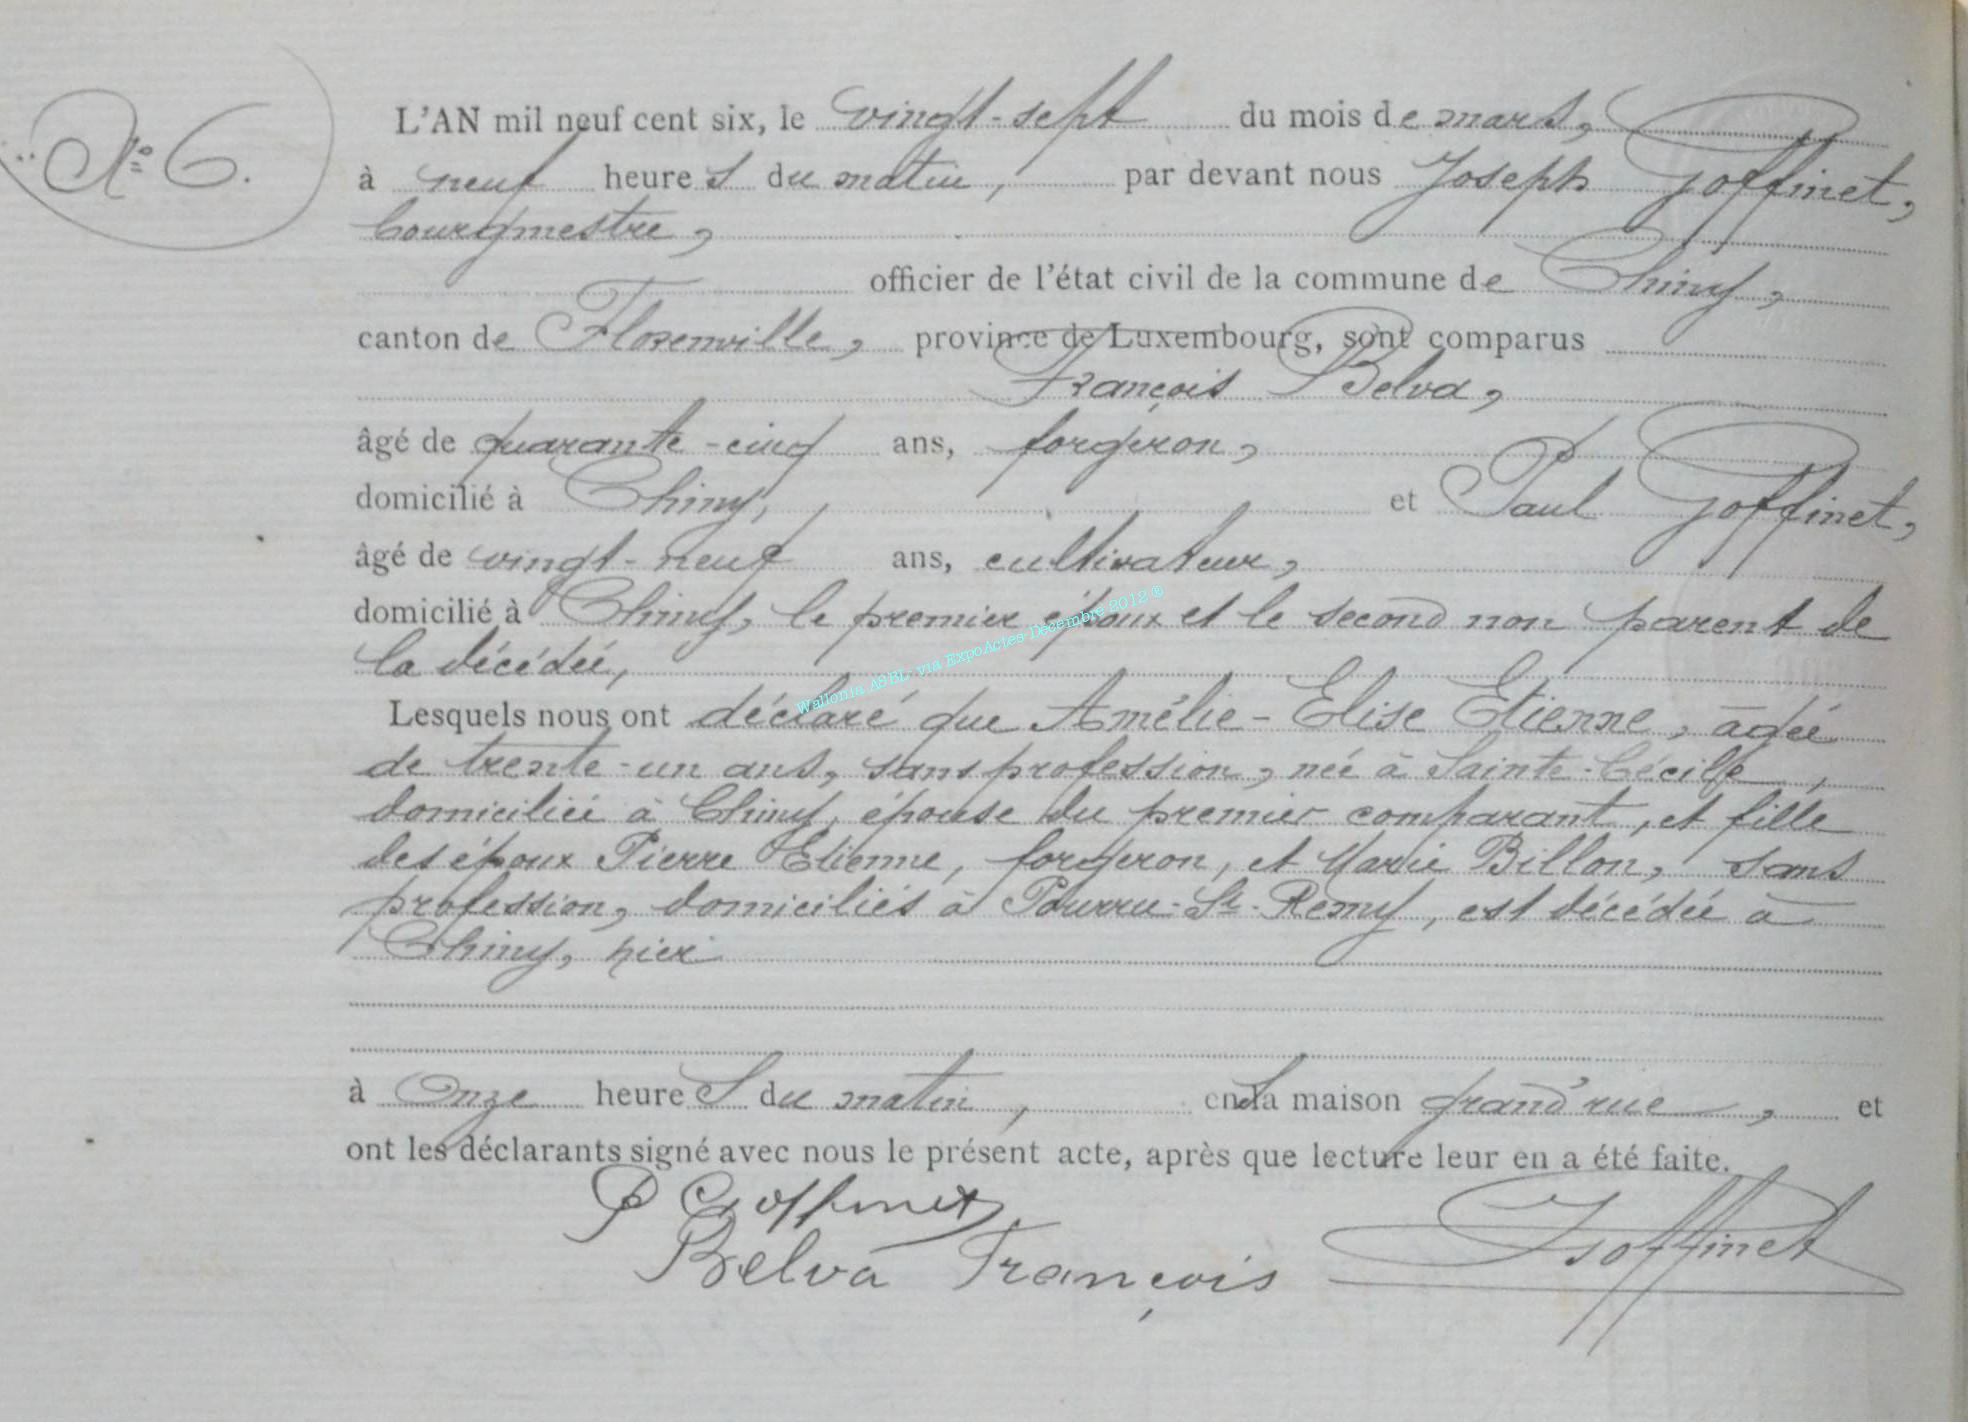 N° 6.
L'AN mil neuf cent six, le vingt-sept du mois de mars,
à neuf heures du matin, par devant nous Joseph Goffinet,
bourgmestre,
officier de l'état civil de la commune de Chiny,
canton de Florenville, province de Luxembourg, sont comparus
François Belva,
âgé de quarante-cinq ans, forgeron,
domicilié à Chiny, et Paul Goffinet,
âgé de vingt-neuf ans, cultivateur,
domicilié à Chiny, le premier époux et le second non parent de
la décédée,
Wallonia ASBL via ExpoActes-Decembre 2012 ®
Lesquels nous ont déclaré que Amélie-Elise Etienne, âgée
de trente-un ans, sans profession, née à Sainte-Cécile,
domiciliée à Chiny, épouse du premier comparant, et fille
des époux Pierre Etienne, forgeron, et Marie Billon, sans
profession, domiciliés à Pourru-St-Remy, est décédée à
Chiny, hier
à onze heures du matin, en sa maison grand'rue, et
ont les déclarants signé avec nous le présent acte, après que lecture leur en a été faite.
P Goffinet
Belva François
J Goffinet